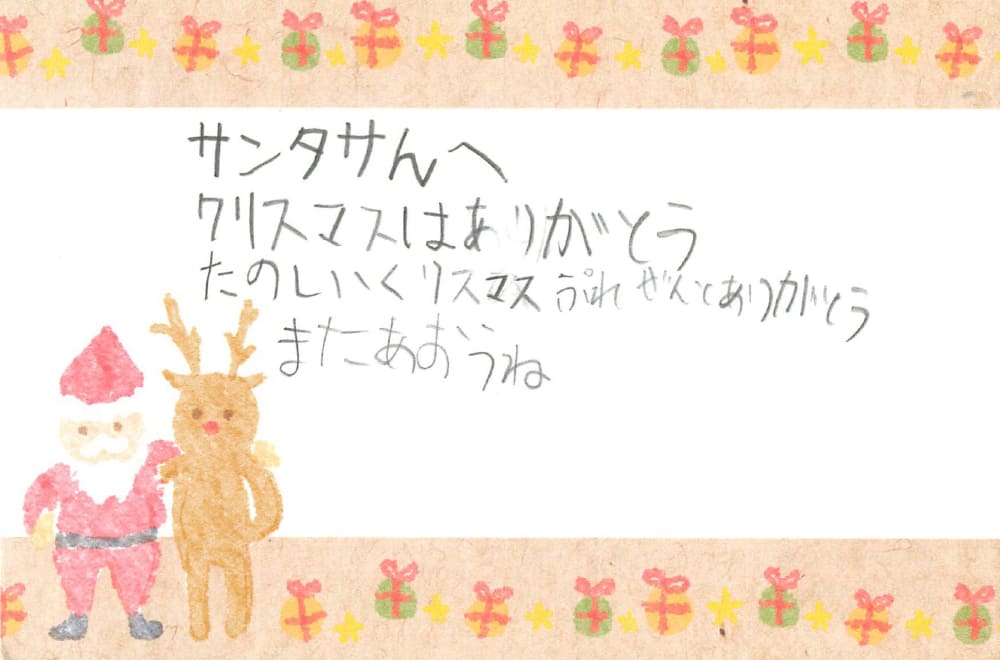 サンタサんへ
クリスマスはありがとう
たのしいくリスマスぷれぜんとありがとう
またあおうね